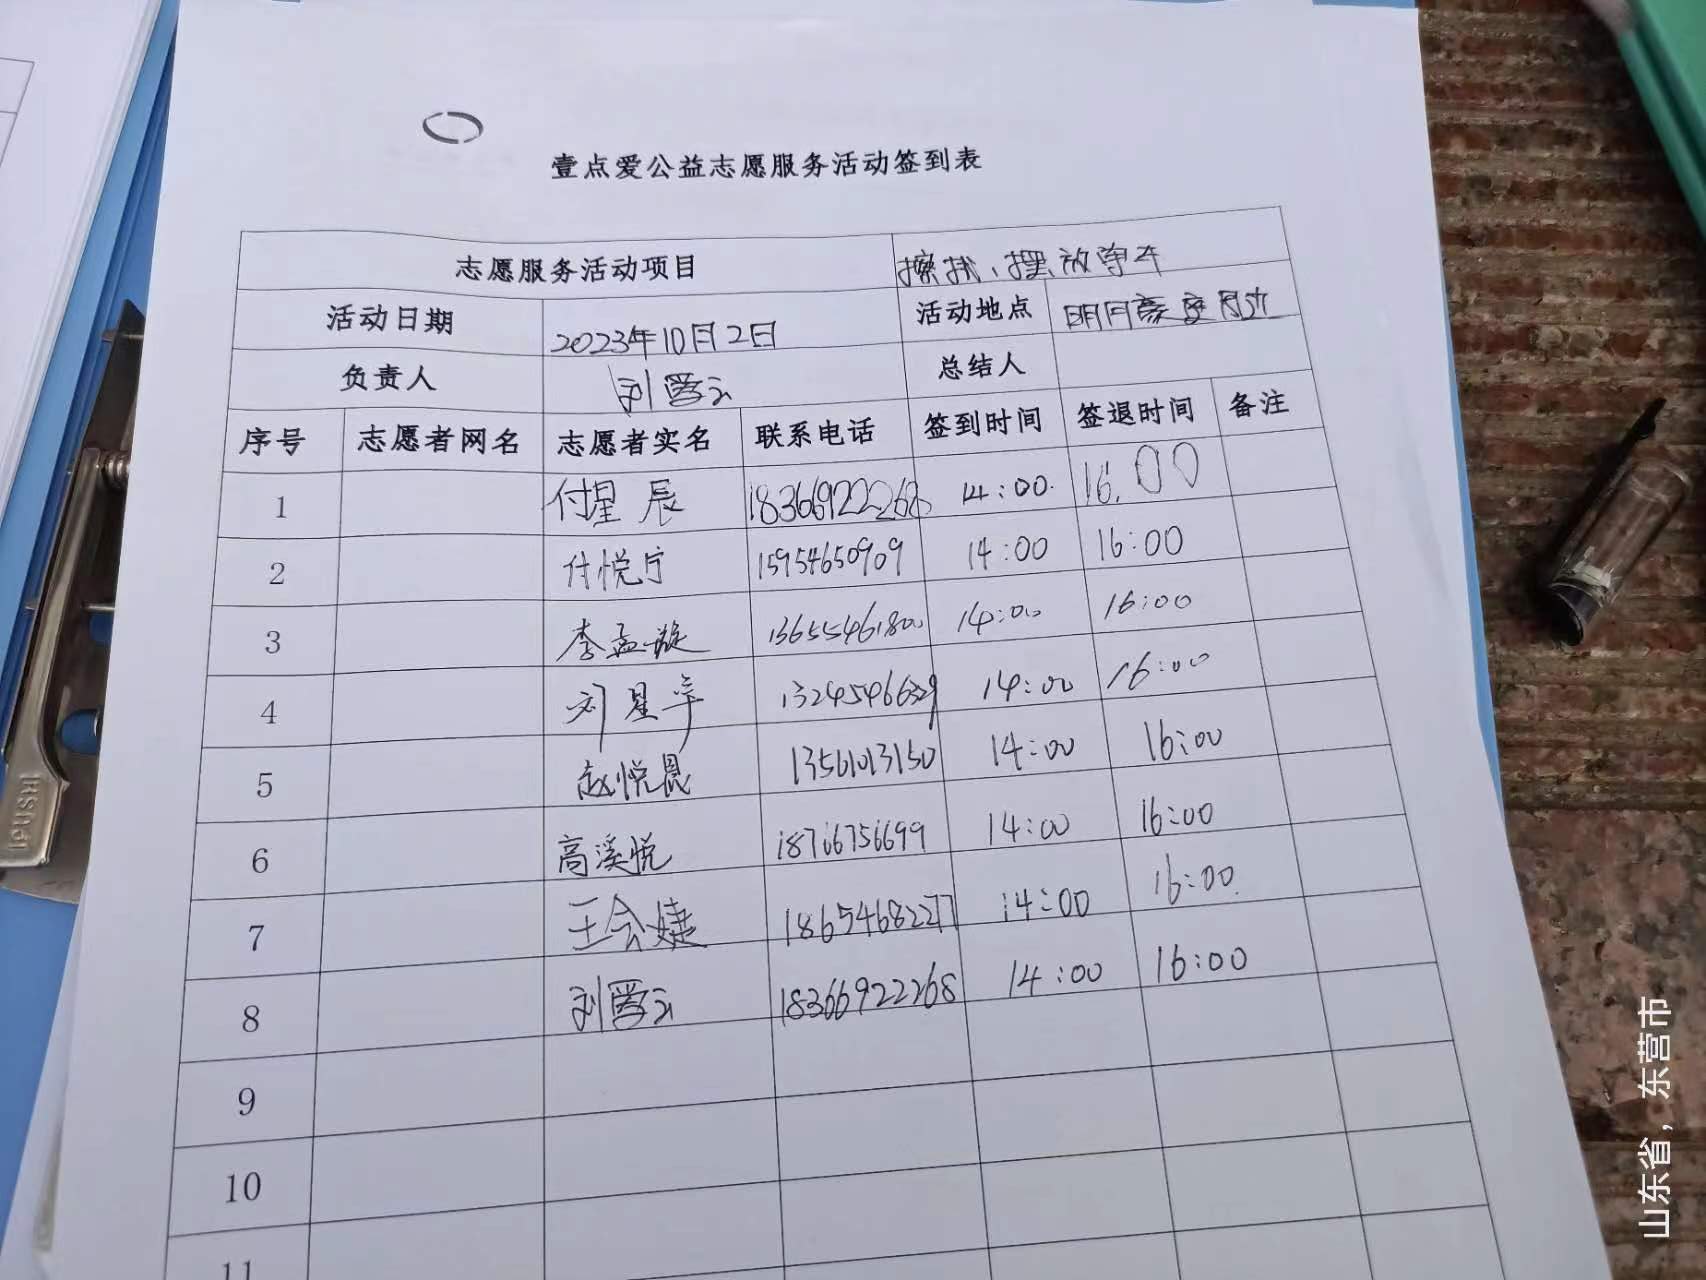 壹点爱公益志愿服务活动签到表
志愿服务活动项目 擦拭、摆放单车
活动日期 2023年10月2日 活动地点 明月豪庭周边
负责人 刘雪云 总结人
序号 志愿者网名 志愿者实名 联系电话 签到时间 签退时间 备注
1 付星辰 18366922268 14:00 16:00
2 付悦宁 15954650909 14:00 16:00
3 李孟璇 14:00 16:00
4 刘星宇 14:00 16:00
5 赵悦晨 13561013150 14:00 16:00
6 高溪悦 18766756699 14:00 16:00
7 王会婕 18654682277 14:00 16:00
8 刘雪云 18366922268 14:00 16:00
9
10
11
山东省，东营市